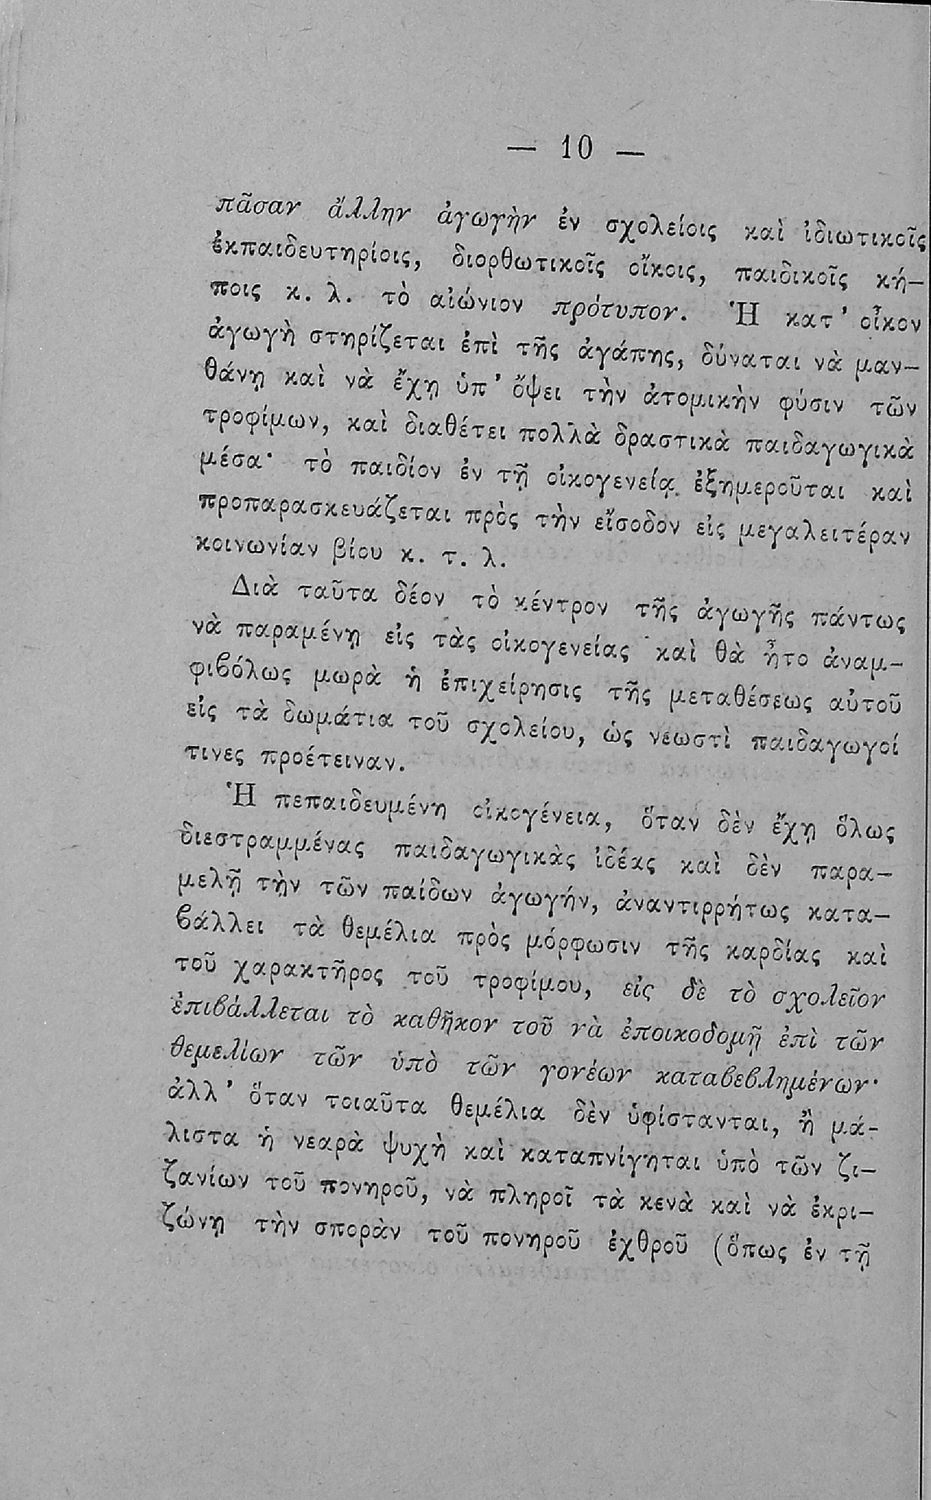 — 10 —
πᾶσαν ἄλλην ἀγωγὴν ἐν σχολείοις καὶ ἰδιωτικοῖς
ἐκπαιδευτηρίοις, διορθωτικοῖς οἴκοις, παιδικοῖς κή—
ποις κ. λ. τὸ αἰώνιον πρότυπον. Ἡ κατ’ οἶκον
ἀγωγὴ στηρίζεται ἐπὶ τῆς ἀγάπης, δύναται νὰ μαν—
θάνῃ καὶ νὰ ἔχῃ ὑπ’ ὄψει τὴν ἀτομικὴν φύσιν τῶν
τροφίμων, καὶ διαθέτει πολλὰ δραστικὰ παιδαγωγικὰ
μέσα· τὸ παιδίον ἐν τῇ οἰκογενείᾳ ἐξημεροῦται καὶ
προπαρασκευάζεται πρὸς τὴν εἴσοδον εἰς μεγαλειτέραν
κοινωνίαν βίου κ. τ. λ.
Διὰ ταῦτα δέον τὸ κέντρον τῆς ἀγωγῆς πάντως
νὰ παραμένῃ εἰς τὰς οἰκογενείας· καὶ θὰ ἦτο ἀναμ—
φιβόλως μωρὰ ἡ ἐπιχείρησις τῆς μεταθέσεως αὐτοῦ
εἰς τὰ δωμάτια τοῦ σχολείου, ὡς νεωστὶ παιδαγωγοί
τινες προέτειναν.
Ἡ πεπαιδευμένη οἰκογένεια, ὅταν δὲν ἔχῃ ὅλως
διεστραμμένας παιδαγωγικὰς ἰδέας καὶ δὲν παρα—
μελῇ τὴν τῶν παίδων ἀγωγήν, ἀναντιρρήτως κατα—
βάλλει τὰ θεμέλια πρὸς μόρφωσιν τῆς καρδίας καὶ
τοῦ χαρακτῆρος τοῦ τροφίμου, εἰς δὲ τὸ σχολεῖον
ἐπιβάλλεται τὸ καθῆκον τοῦ νὰ ἐποικοδομῇ ἐπὶ τῶν
θεμελίων τῶν ὑπὸ τῶν γονέων καταβεβλημένων·
ἀλλ’ ὅταν τοιαῦτα θεμέλια δὲν ὑφίστανται, ἢ μά-
λιστα ἡ νεαρὰ ψυχὴ καὶ καταπνίγηται ὑπὸ τῶν ζι—
ζανίων τοῦ πονηροῦ, νὰ πληροῖ τὰ κενὰ καὶ νὰ ἐκρι—
ζώνῃ τὴν σπορὰν τοῦ πονηροῦ ἐχθροῦ (ὅπως ἐν τῇ